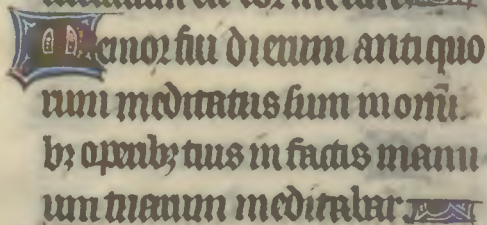 Memor fui dierum antiquo
rum meditatus sum in omi̅
bꝫ operibꝫ tuis in factis manu
um tuarum meditabar.